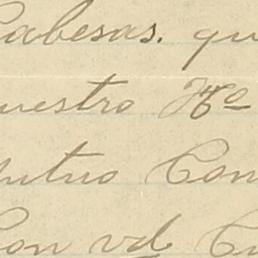 Cabesas. qu
uestro
utuo Con
Con vd. C